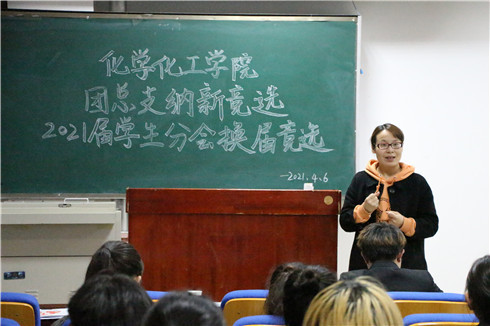 化学化工学院
团总支纳新竞选
2021届学生分会换届竞选
—2021.4.6